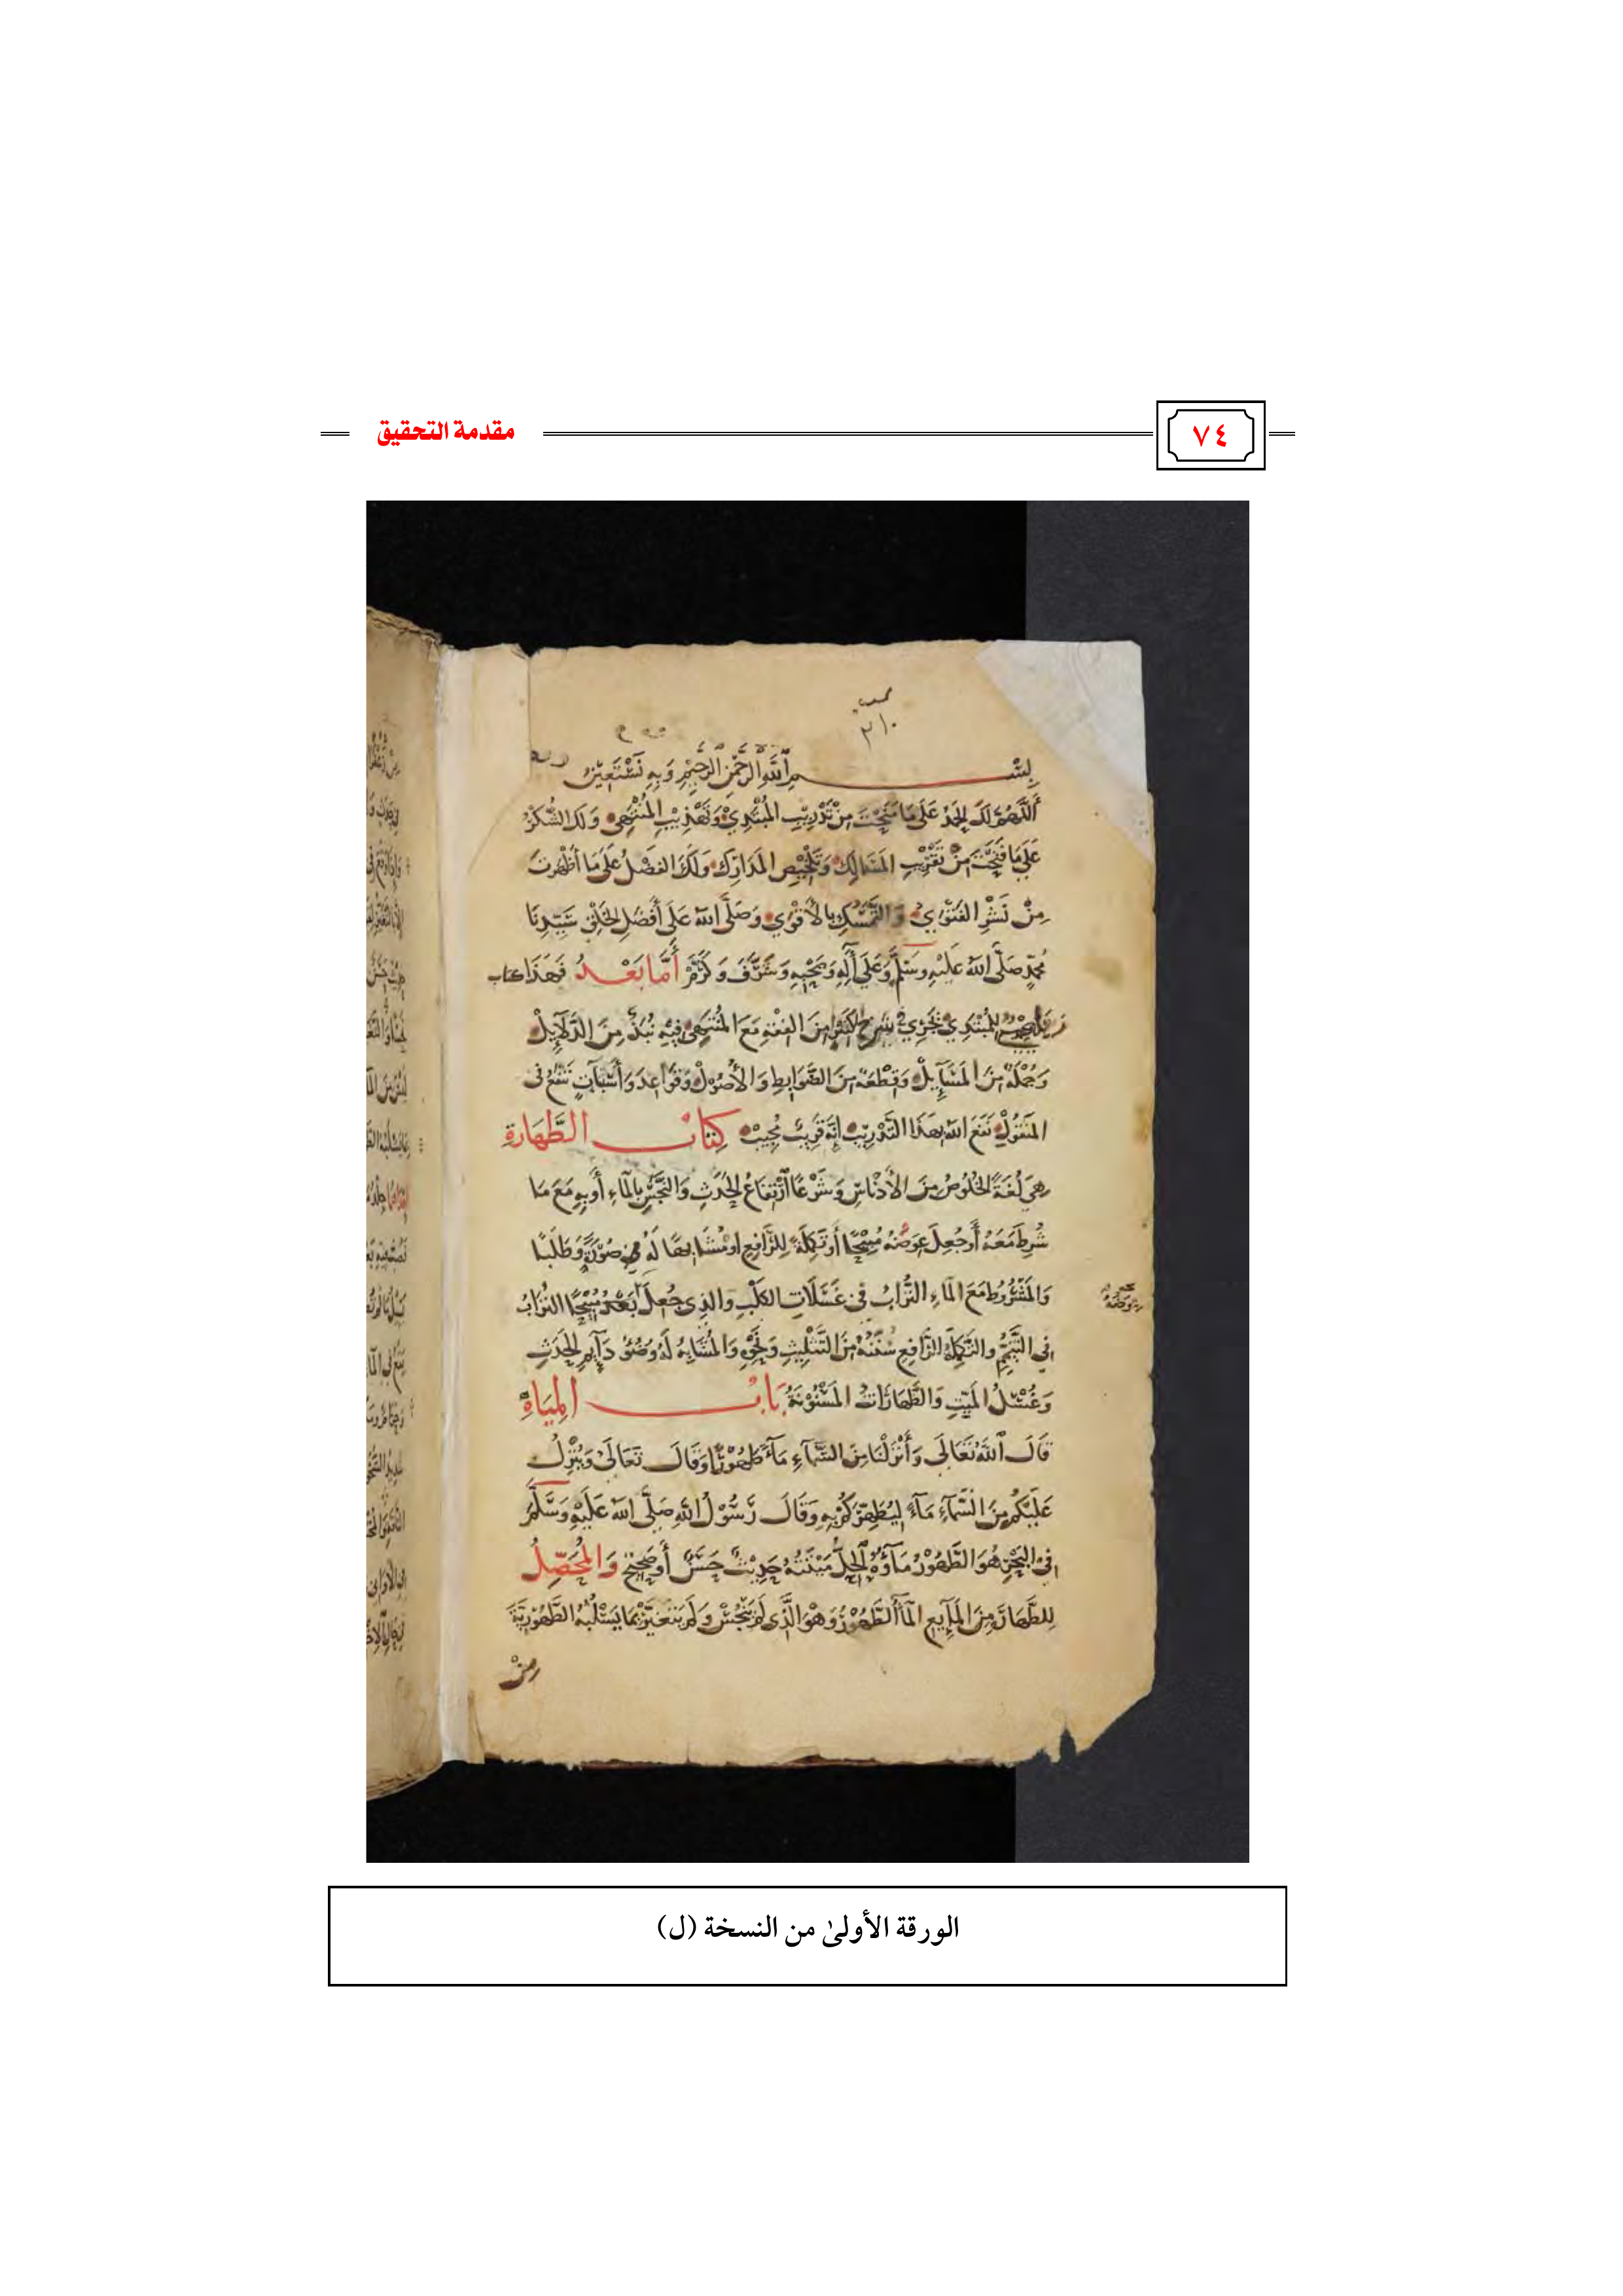 ٧٤
مقدمة التحقيق
٢١٠
بسم الله الرحمن الرحيم وبه نستعين
اللهم لك الحمد على ما منحت من تدريب المبتدي وتهذيب المنتهي ولك الشكر
على ما فتحت من تقريب المسالك وتلخيص المدارك ولك الفضل على ما أظهرت
من نشر الفتوي والتمسك بالأقوي وصلى الله على أفضل الخلق سيدنا
محمد صلى الله عليه وسلم وعلى آله وصحبه وشرف وكرم أما بعد فهذا كتاب
للمبتدي من الفقه مع المنتهي فيه نبذ من الدلايل
وجملة من المسآيل وقطعة من الضوابط والأصول وقواعد وأسباب تنفع في
المنقول نفع الله بهذا التدريب إنه قريب مجيب كتاب الطهارة
هي لغة الخلوص من الأدناس وشرعا ارتفاع الحدث والنجس بالماء أو به مع ما
شرط معه أو جعل عوضه مسيحا أو تكملة للرافع او مشابها له في صورة وطلبا
والمشروط مع الماء التراب في غسلات الكلب والذي جعل بعد مبيحا التراب
في التيمم والتكملة للرافع سننه من التثليث ونحوه والمشابه له وضوء دآيم الحدث
وغسل الميت والطهارات المسنونة باب المياه
قال الله تعالى وأنزلنا من السماء ماء طهورا وقال تعالى وينزل
عليكم من السماء ماء ليطهركم به وقال رسول الله صلى الله عليه وسلم
في البحر هو الطهور مآؤه الحل ميتته حديث حسن أو صحيح والمحصل
للطهارة من المآيع المآء الطهور وهو الذي لم ينجس ولم يتغير بما يسلبه الطهورية
من
الورقة الأولىٰ من النسخة (ل)